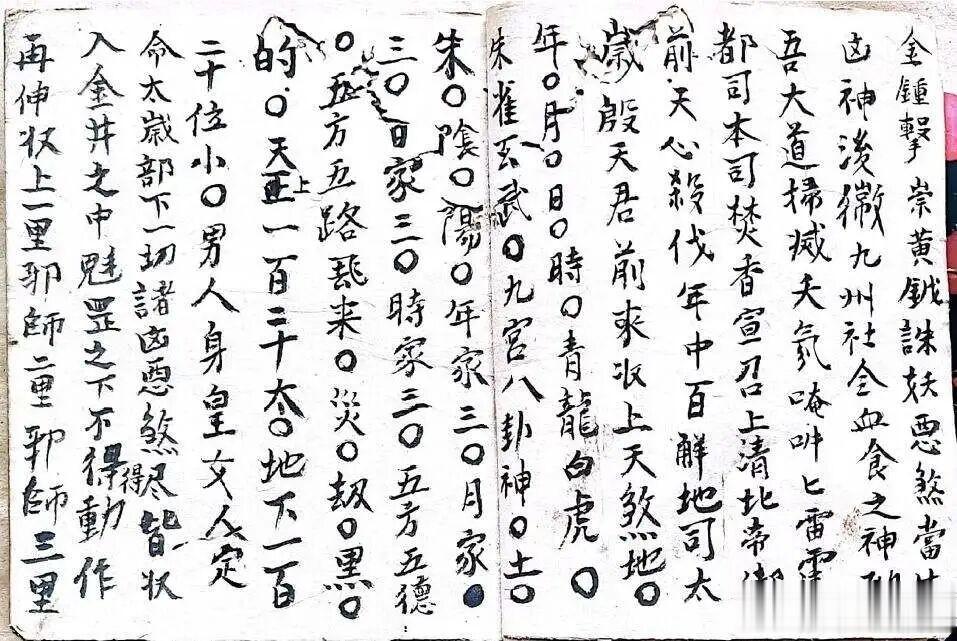 金鍾擊祟黃鉞誅妖惡煞當
凶神後微九州社令血食之神
吾大道掃威夭氛唵吽匕雷霆
都司本司焚香宣召上清北帝御
前天心殺伐年中百解地司太
歲殷天君前來收上天煞地〇
年〇月〇日〇時〇青龍白虎〇
朱雀玄武〇九宮八卦神〇土〇
朱〇陰〇陽〇年家三〇月家
三〇日家三〇時家三〇五方五德
〇五方五路 来〇災〇刼〇黑〇
的〇天上正一百二十六〇地下一百
二十位小〇男人身皇女人定
命太歲部下一切諸凶惡煞尽皆状
入金井之中魁罡之下不得得動作
再伸状上一里邪師二里邪師三里